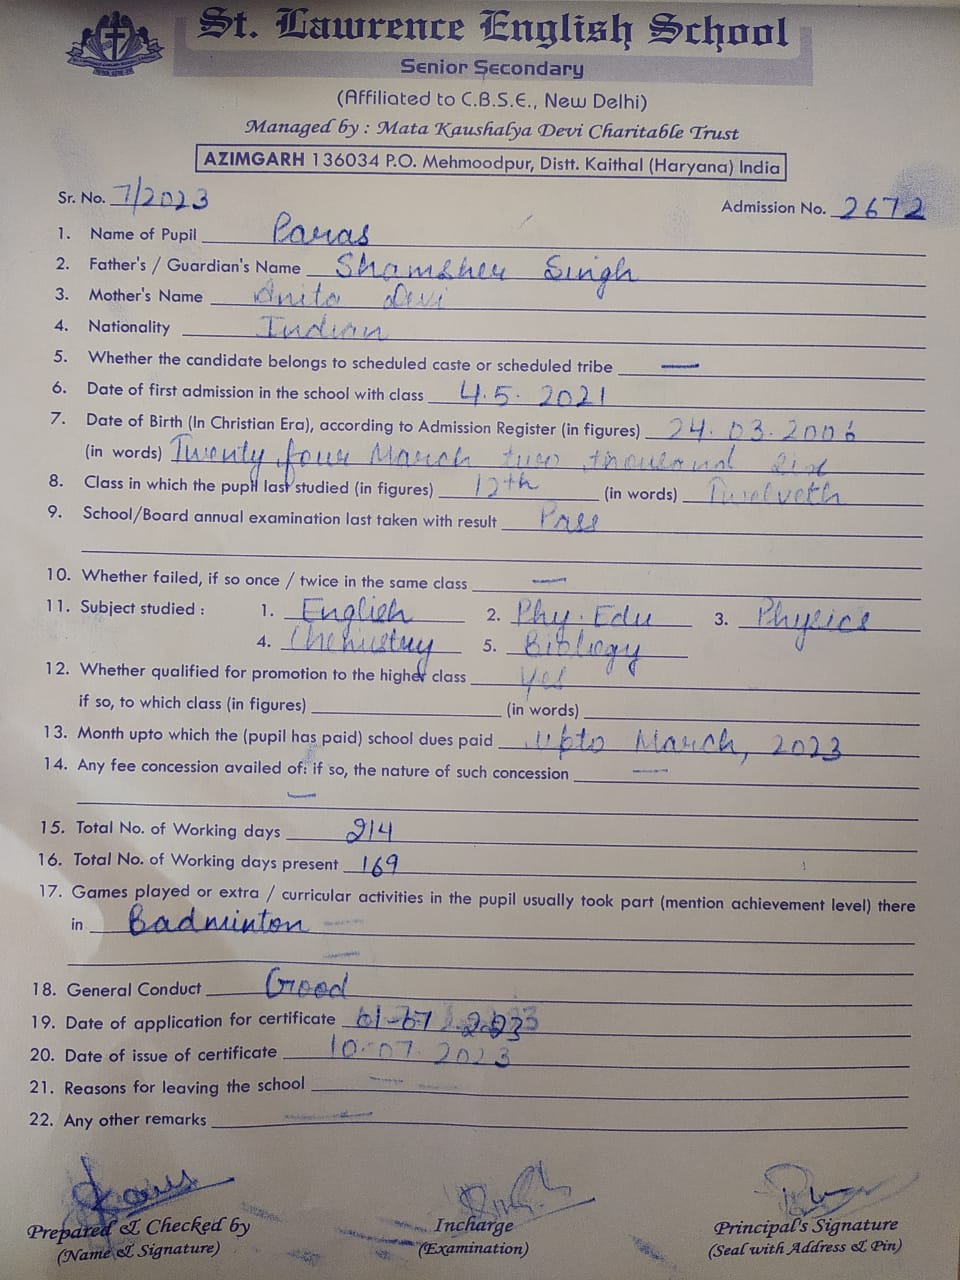 St. Lawrence English School
Senior Secondary
(Affiliated to C.B.S.E., New Delhi)
Managed by : Mata Kaushalya Devi Charitable Trust
AZIMGARH 136034 P.O. Mehmoodpur, Distt. Kaithal (Haryana) India
Sr. No. 7/2023 Admission No. 2672
1. Name of Pupil Paras
2. Father's / Guardian's Name Shamsher Singh
3. Mother's Name Anita Devi
4. Nationality Indian
5. Whether the candidate belongs to scheduled caste or scheduled tribe —
6. Date of first admission in the school with class 4.5.2021
7. Date of Birth (In Christian Era), according to Admission Register (in figures) 24.03.2006
(in words) Twenty four March two thousand six
8. Class in which the pupil last studied (in figures) 12th (in words) Twelveth
9. School/Board annual examination last taken with result Pass
10. Whether failed, if so once / twice in the same class —
11. Subject studied : 1. English 2. Phy. Edu 3. Physics
4. Chemistry 5. Biology
12. Whether qualified for promotion to the higher class Yes
if so, to which class (in figures) (in words)
13. Month upto which the (pupil has paid) school dues paid upto March, 2023
14. Any fee concession availed of: if so, the nature of such concession —
—
15. Total No. of Working days 214
16. Total No. of Working days present 169
17. Games played or extra / curricular activities in the pupil usually took part (mention achievement level) there
in Badminton —
—
18. General Conduct Good
19. Date of application for certificate 01-07 2023
20. Date of issue of certificate 10.07.2023
21. Reasons for leaving the school —
22. Any other remarks —
Prepared & Checked by Incharge Principal's Signature
(Name & Signature) (Examination) (Seal with Address & Pin)